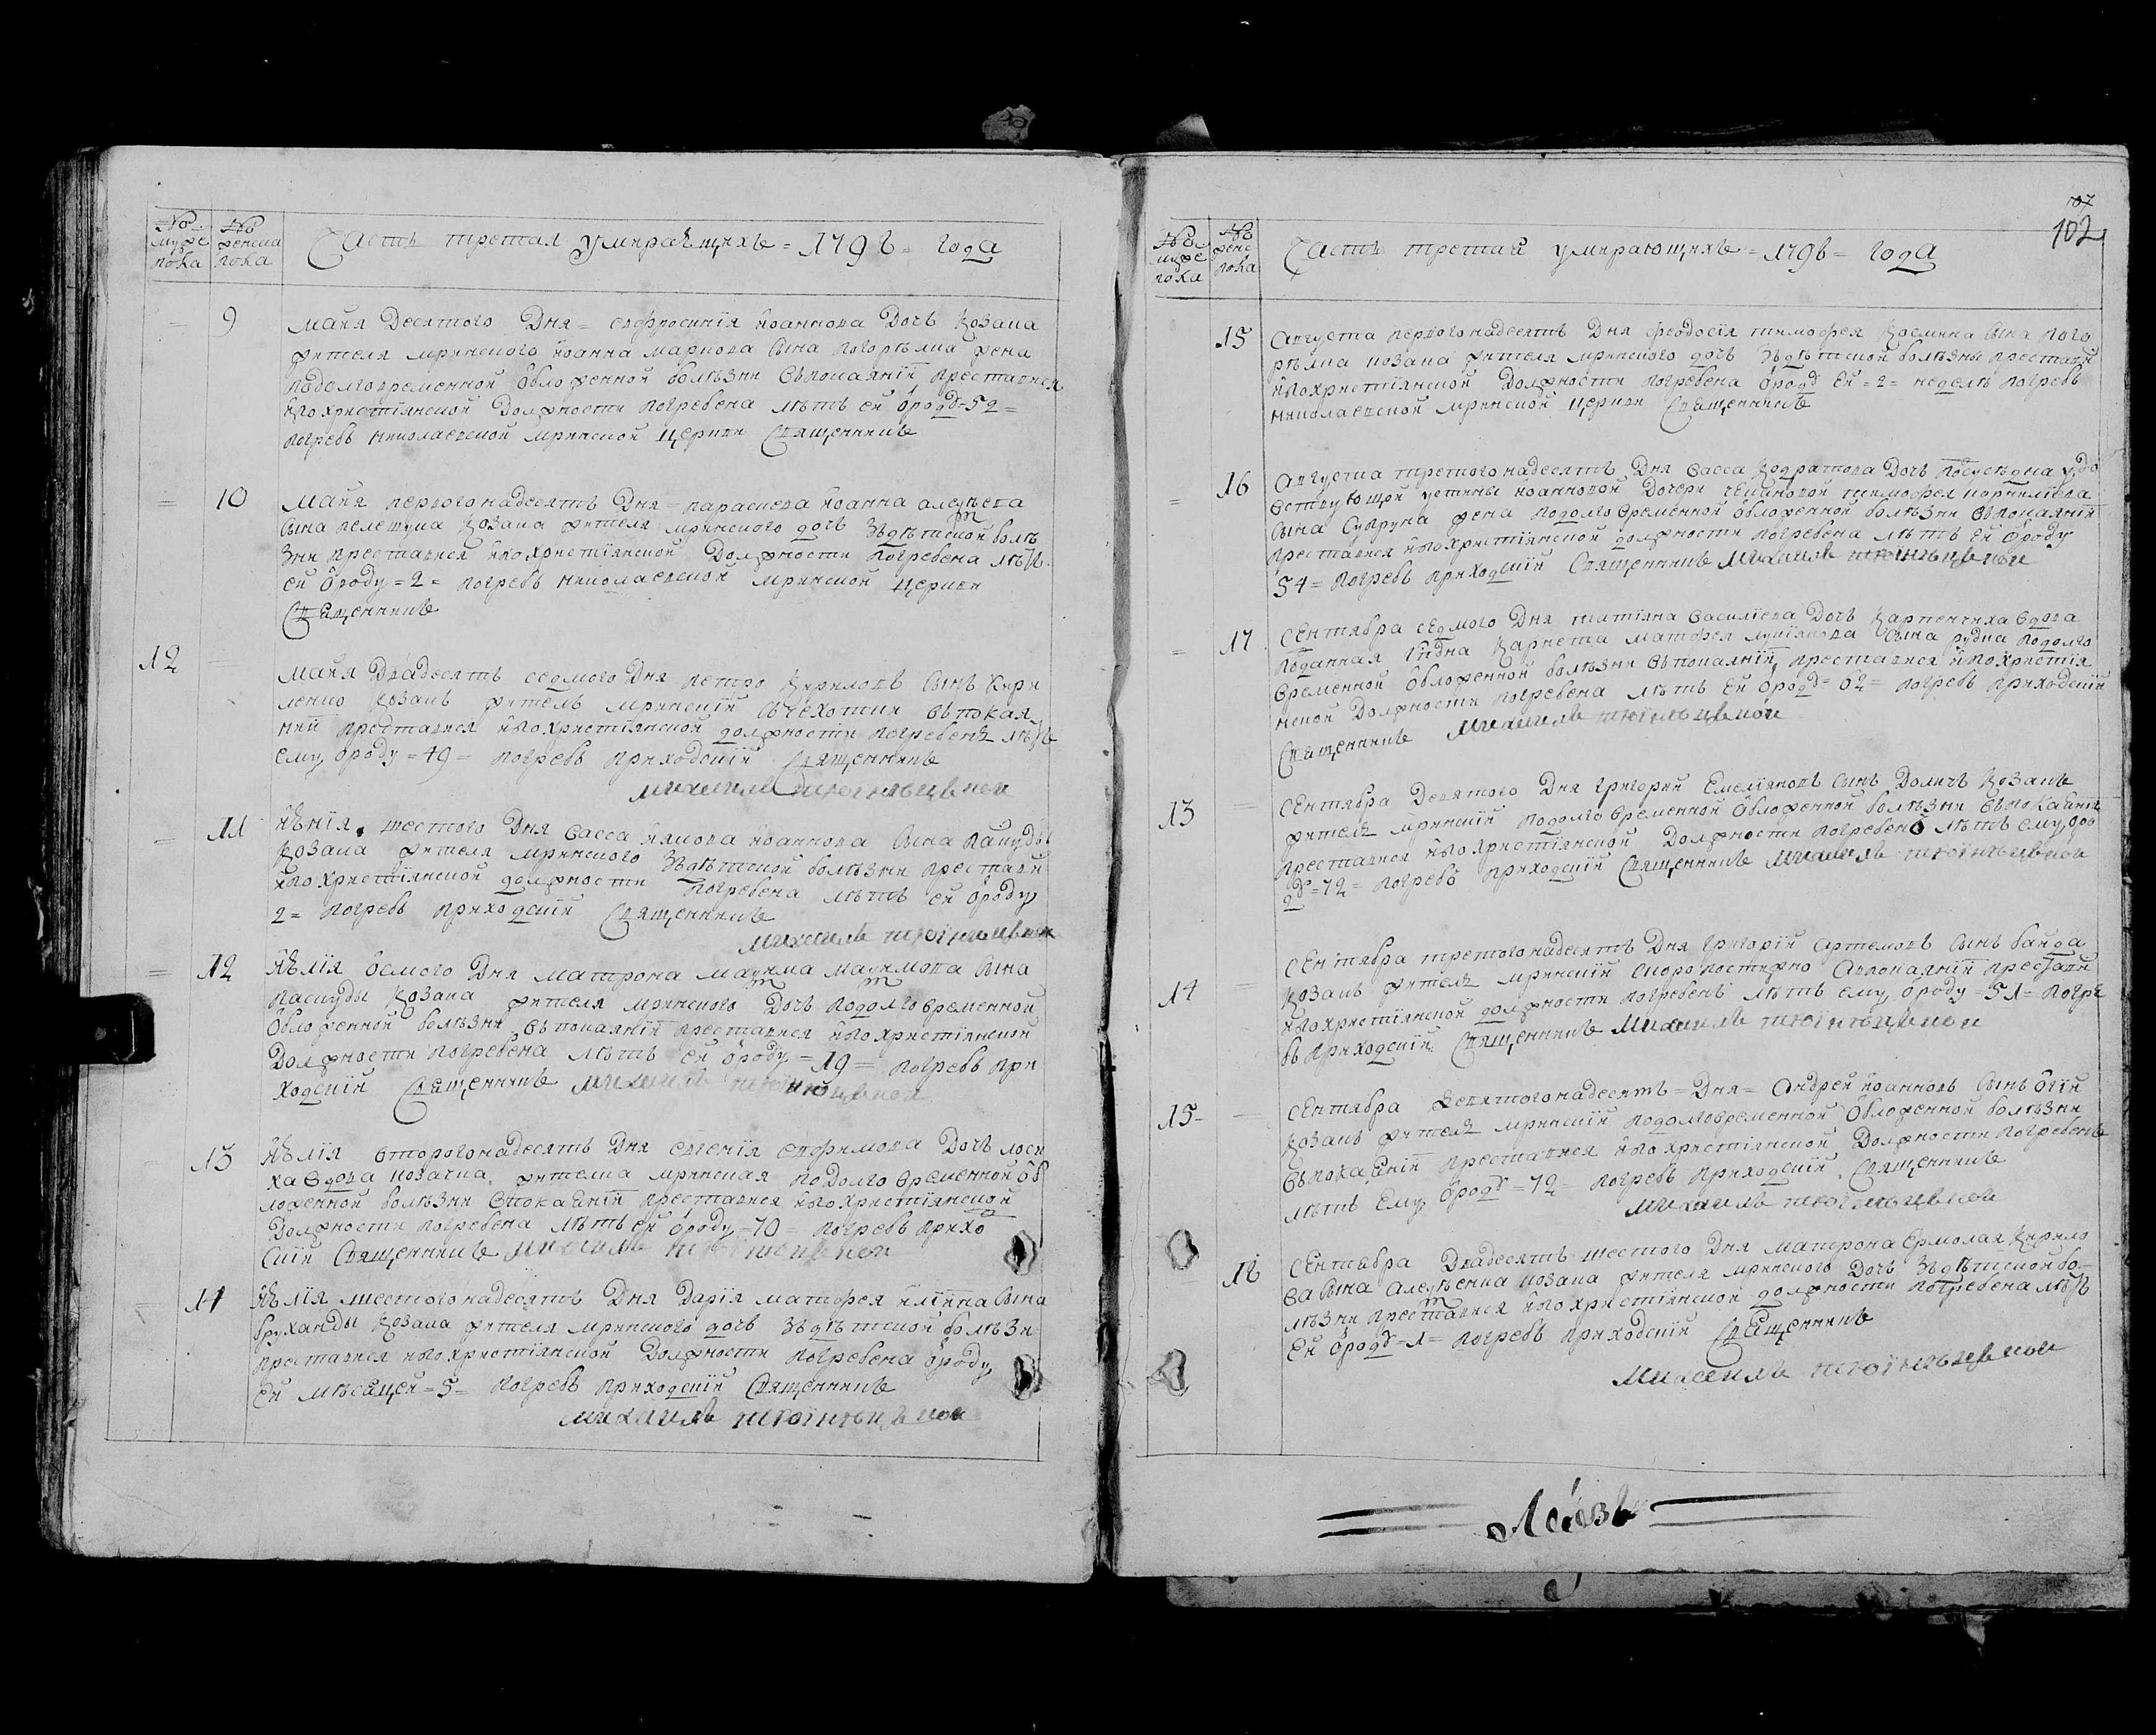 № муже пока
№ женска пока
Часть третая умирающихъ = 1796 = года
9
маия Десятого Дня = евфросинїя иоаннова Дочь козака
жителя мринского иоанна маркова сына погорѣлка жена
подолговременной обложенной болѣзни въпокаянїи преставися
ипохристїянской Должности погребена лѣтъ ей ѿроду = 52 =
погребъ николаевской мринской церкви Священникъ
10
маия первогонадесять Дня = параскева иоанна алеѯѣева
сына пелешука козака жителя мринского дочь зъдѣтской болѣ
зни преставися ипохристїянской Должности погребена лѣтъ
ей ѿроду = 2 = погребъ николаевской мринской церкви
Священникъ
12
маия Двадесять седмого Дня петро кириловъ сынъ кири
ленко козакъ житель мринскїй въчехотки въпокая
нїи преставися ипохристїянской должности погребенъ лѣтъ
ему ѿроду = 49 = погребъ приходскїй Священникъ
михаилъ
11
шестого Дня васса иоаннова сына
козака жителя мринского зъдѣтской болѣзни престави
ипохристїянской должности погребена лѣтъ ей ѿроду
2 = погребъ приходскїй Священникъ
михаилъ
12
осмого Дня матрона маѯима маѯимова сына
паскуды козака жителя мринского Дочь подолговременной
обложенной болѣзни въпокаянїи преставися ипохристїянской
Должности погребена лѣтъ ей ѿроду = 19 = погребъ при
ходскїй Священникъ михаилъ
13
второгонадесять Дня евгенїя евфимова Дочь лоси
ха вдова козачка жителка мринская подолговременной об
ложенной болѣзни впокаенїи преставися ипохристїянской
Должности погребена лѣтъ ей ѿроду = 70 = погребъ прихо
скїй Священникъ михаилъ
14
шестогонадесять Дня Дарїя матфея илїина сына
бруханды козака жителя мринского дочь зъдѣтской болѣзни
преставися ипохристїянской Должности погребена ѿроду
ей мѣсяцей = 5 = погребъ приходскїй Священникъ
михаилъ
107
102
№ муже пока
№ женс пока
Часть третая умирающихъ = 1796 = года
15
Августа первогонадесять Дня феодосїя тимофея козмина сына пого
рѣлка козака жителя мринского дочь зъдѣтской болѣзны престави
ипохристїянской Должности погребена ѿроду ей = 2 = неделѣ погребъ
николаевской мринской церкви Священникъ
16
Августа третогонадесять Дня васса кодратова Дочь
устины иоанновой Дочери тимофея
сына супруна жена подолговременной обложенной болѣзни въпокаянїи
преставися ипохристїянской должности погребена лѣтъ ей ѿроду
54 = погребъ приходскїй Священникъ михаилъ
17
Сентября седмого Дня татїяна василїева Дочь карпенчиха вдова
подданная корнета матфея лукїянова сына рудка подолго
временной обложенной болѣзни въпокаянїи преставися ипохристїя
нской Должности погребена лѣтъ ей ѿроду = 62 = погребъ приходскїй
Священникъ михаилъ
13
Сентября Девятого Дня григорий емелїяновъ сынъ Доличъ козакъ
жителъ мринскїй подолговременной обложенной болѣзни въпокаенїи
преставися ипохристїянской Должности погребенъ лѣтъ ему ѿро
ду = 72 = погребъ приходскїй Священникъ михаилъ
14
Сентября третогонадесять Дня григорїй артемовъ сынъ байда
козакъ жителъ мринскїй скоропостижно престави
ипохристїянской должности погребенъ лѣтъ ему ѿроду = 51 = погре
бъ приходскїй Священникъ михаилъ
15
Сентября Девятогонадесять = Дня = Андрей иоанновъ сынъ
козакъ жителъ мринскїй подолговременной обложенной болѣзни
въпокаенїи преставися ипохристїянской Должности погребенъ
лѣтъ ему ѿроду = 72 = погребъ приходскїй Священникъ
михаилъ
16
Сентября Двадесять шестого Дня матрона ермолая кирило
ва сына алеѯѣенка козака жителя мринского Дочь зъдѣтской бо
лѣзни преставися ипохристїянской должности погребена лѣтъ
ей ѿроду = 1 = погребъ приходскїй Священникъ
михаилъ